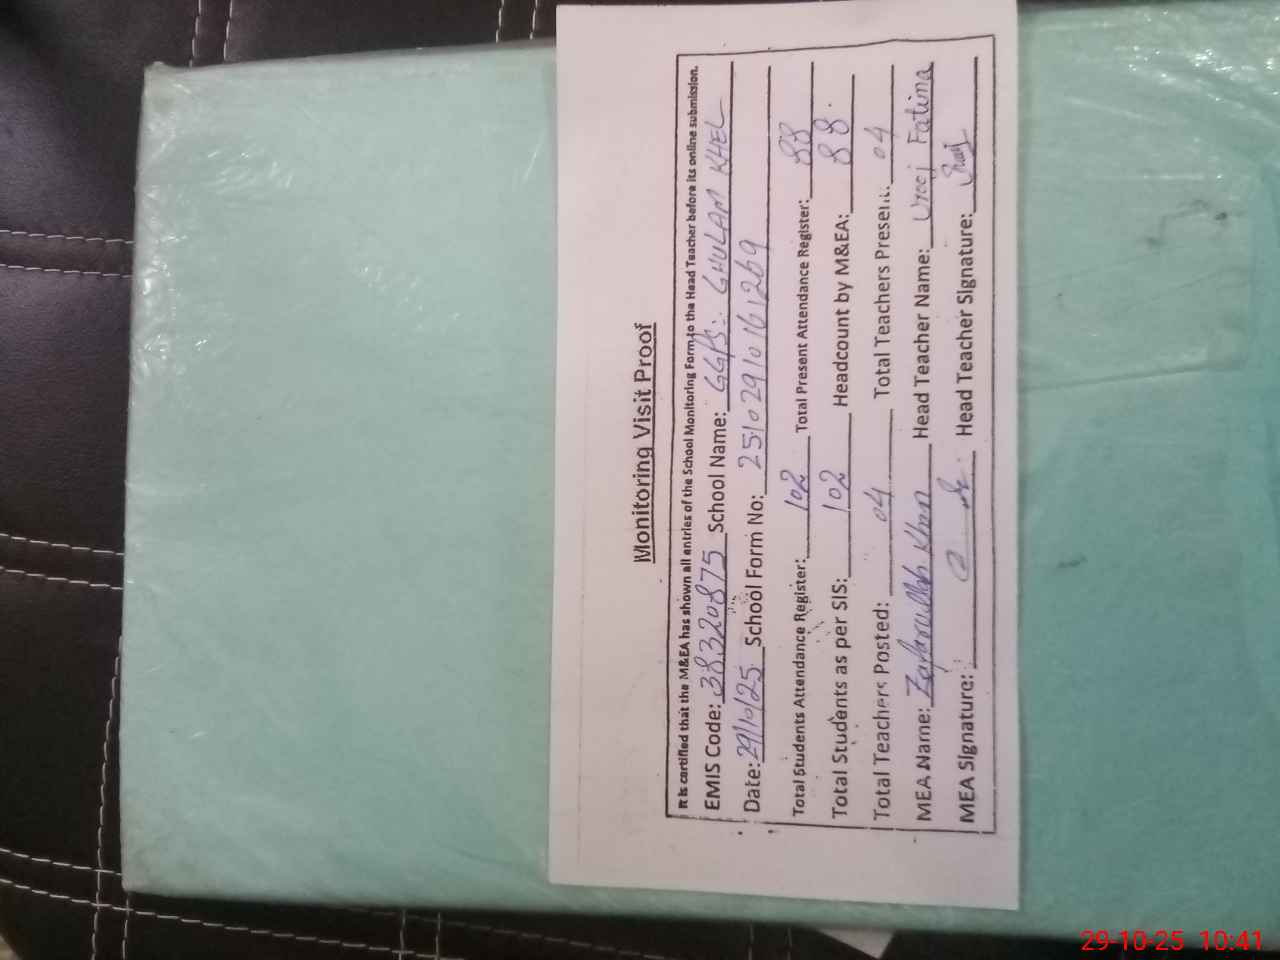 Monitoring Visit Proof
It is certified that the M&EA has shown all entries of the School Monitoring Form to the Head Teacher before its online submission.
EMIS Code: 38320875 School Name: GGPS: GHULAM KHEL
Date: 29/10/25 School Form No: 25102910161269
Total Students Attendance Register: 102 Total Present Attendance Register: 88
Total Students as per SIS: 102 Headcount by M&EA: 88
Total Teachers Posted: 04 Total Teachers Present: 04
MEA Name: Zafarullah Khan Head Teacher Name: Urooj Fatima
MEA Signature: Head Teacher Signature:
29-10-25 10:41